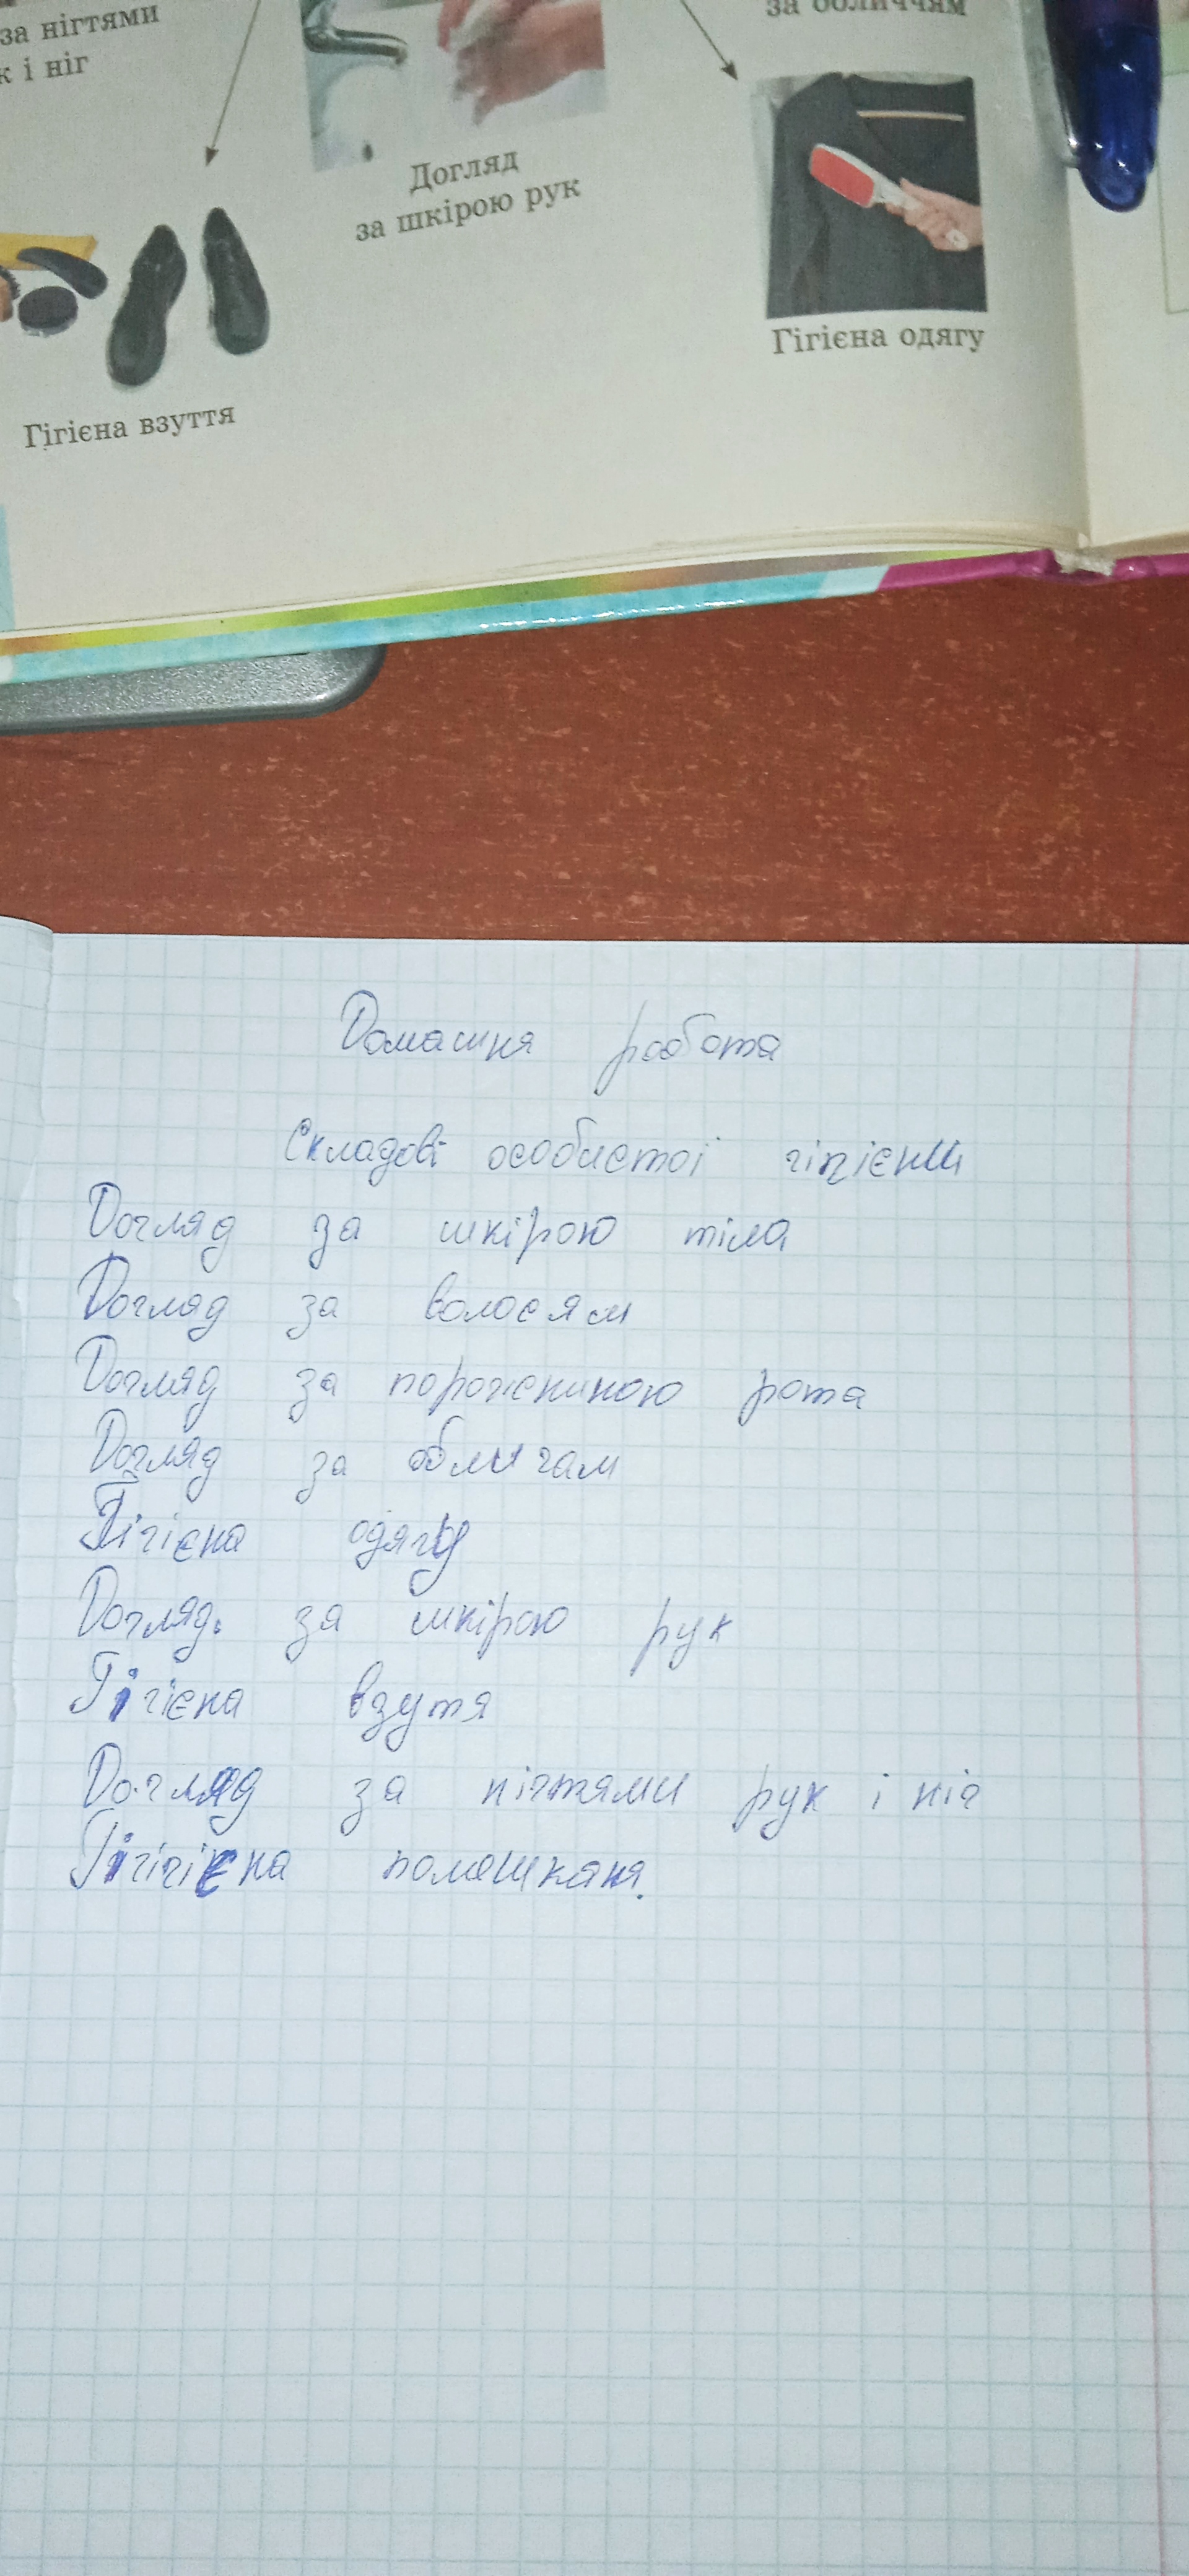 за нігтями
к і ніг
за обличчям
Догляд
за шкірою рук
Гігієна одягу
Гігієна взуття
Домашня робота
Складові особистої гігієни
Догляд за шкірою тіла
Догляд за волосям
Догляд за порожниною рота
Догляд за обличам
Гігієна одягу
Догляд за шкірою рук
Гігієна взутя
Догляд за нігтями рук і ніг
Гігігієна помешканя.